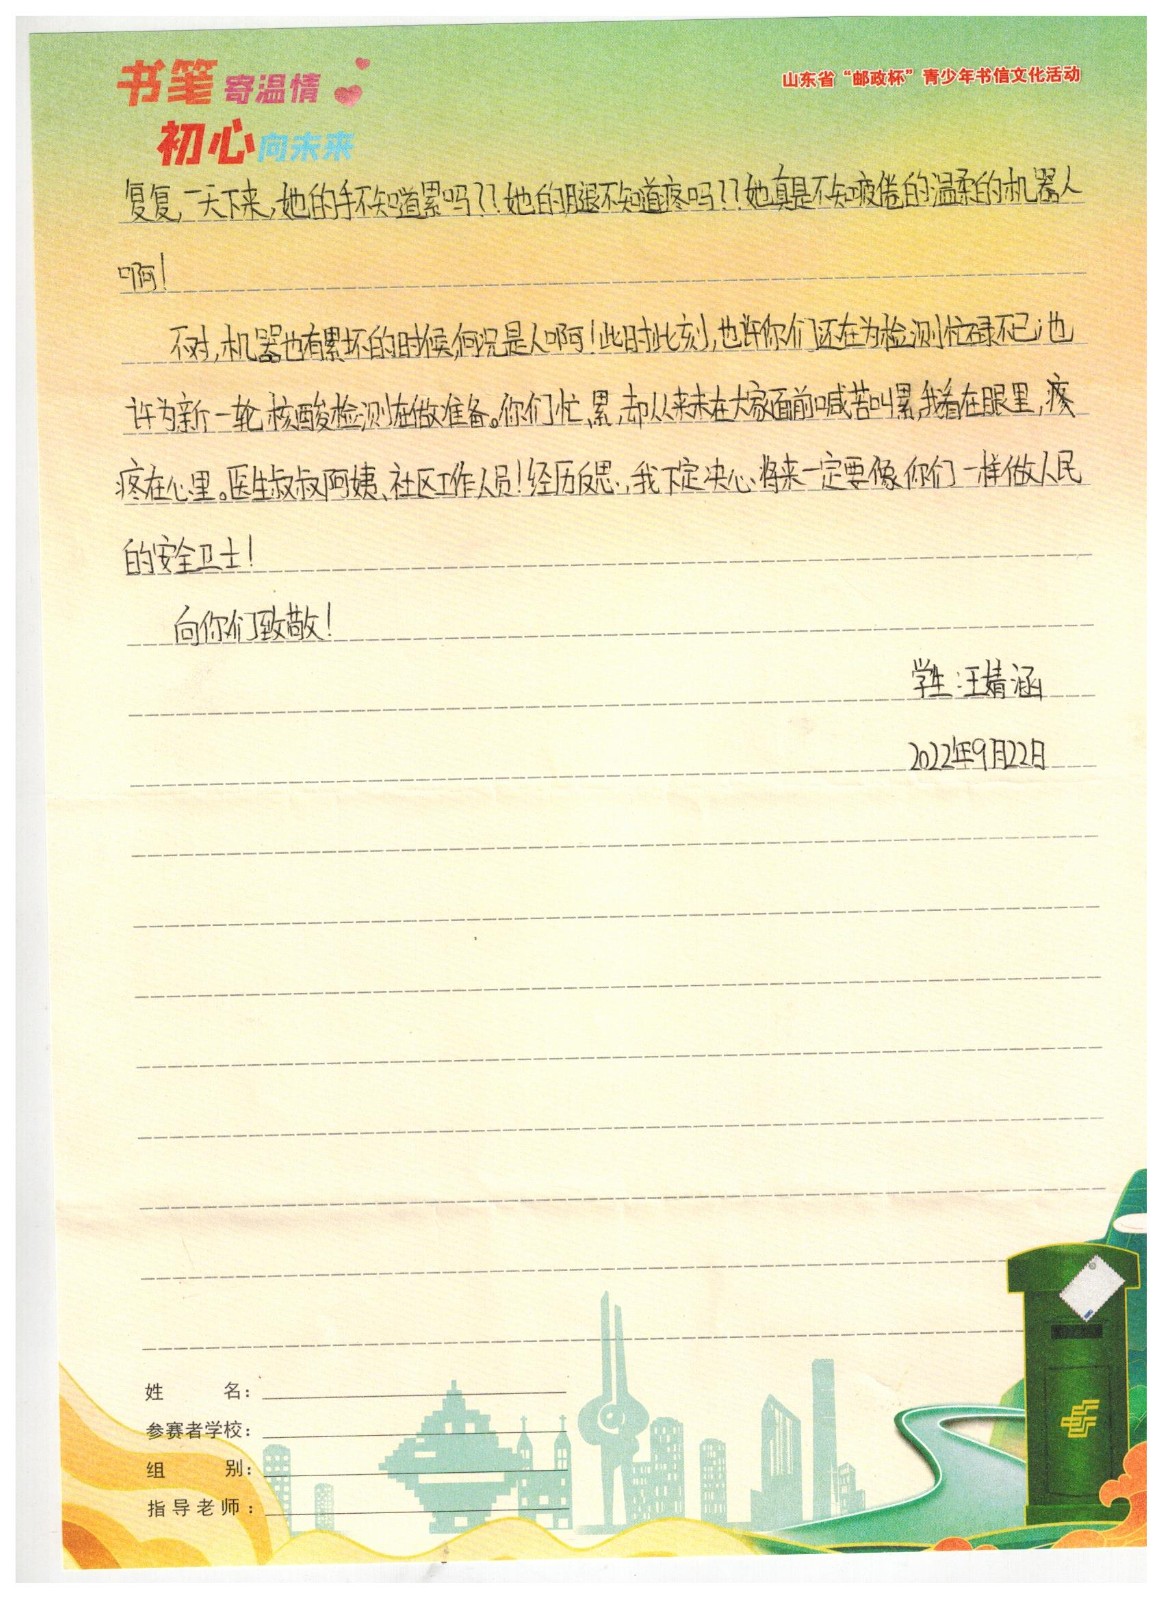 书笔寄温情
初心向未来
山东省“邮政杯”青少年书信文化活动
复复,一天下来,她的手不知道累吗??她的腿不知道疼吗??她真是不知疲倦的温柔的机器人
啊!
不对,机器也有累坏的时候,何况是人啊!此时此刻,也许你们还在为检测忙碌不已;也
许为新一轮核酸检测在做准备。你们忙、累,却从来未在大家面前喊苦叫累,我看在眼里,疼
疼在心里。医生叔叔阿姨、社区工作人员!经历反思,我下定决心,将来一定要像你们一样做人民
的安全卫士!
向你们致敬!
学生:王婧涵
2022年9月22日
姓 名:
参赛者学校:
组 别:
指导老师: